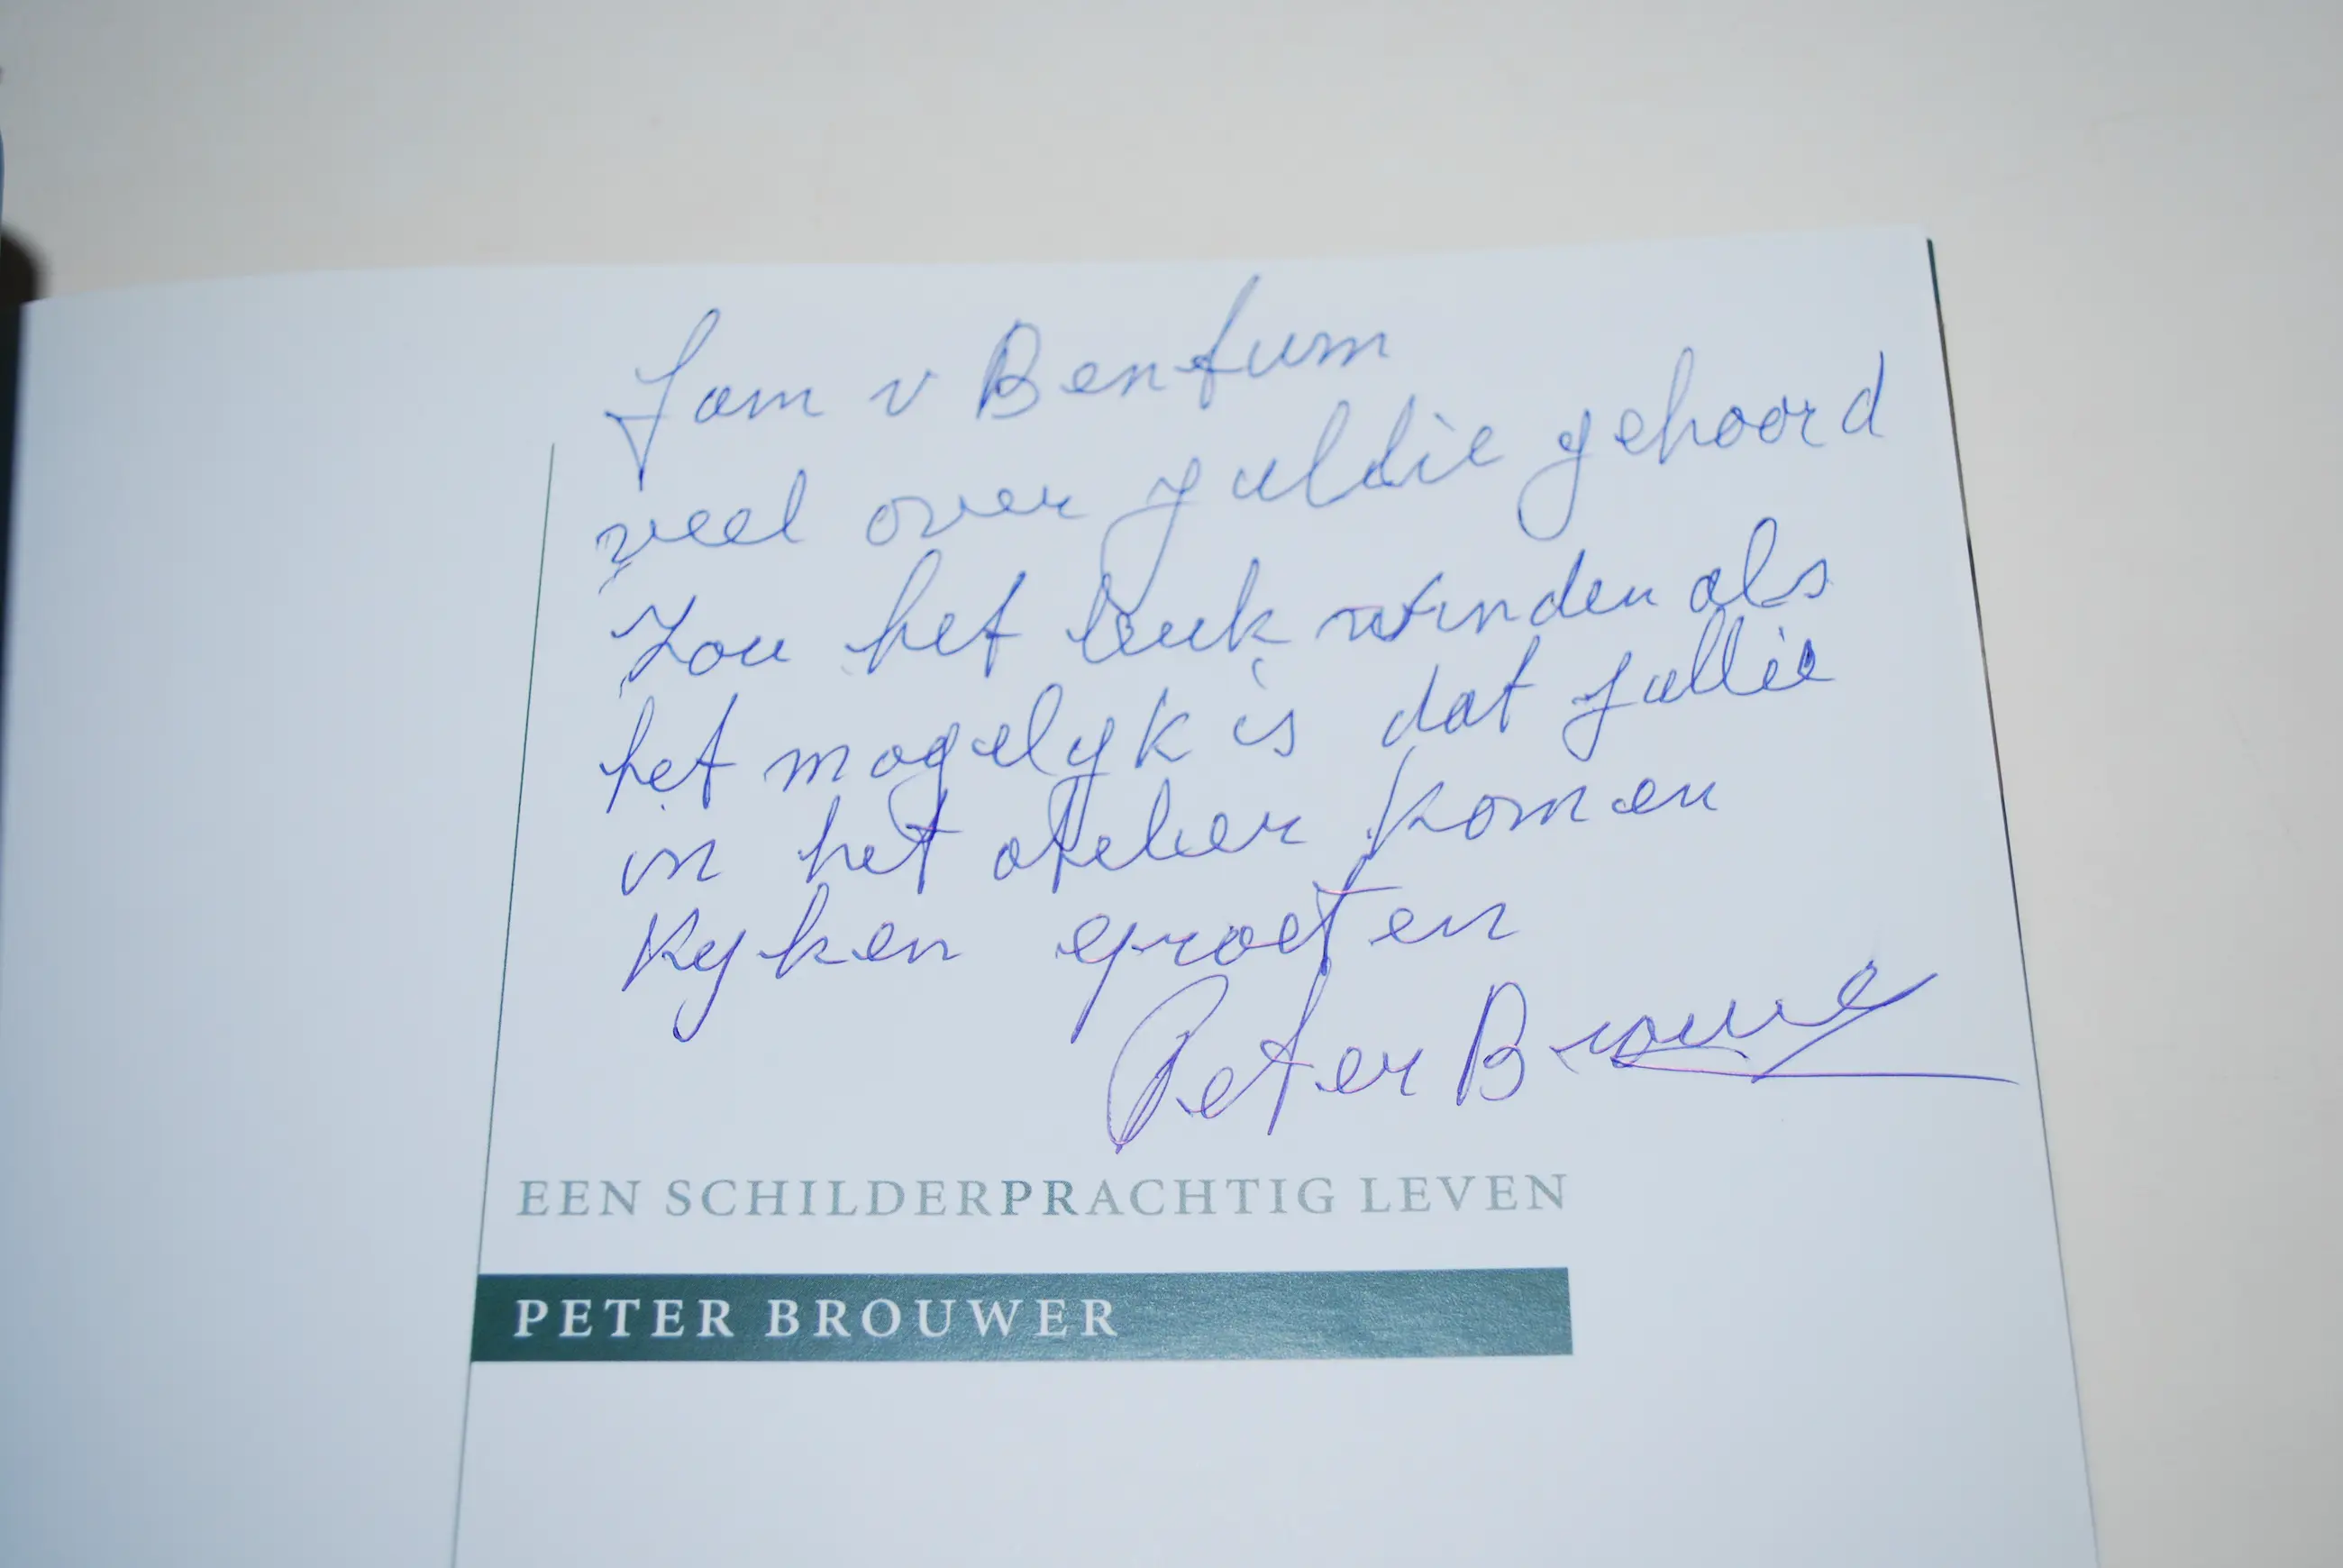 Fam v Bentum
veel over juldie gehoord
Zou het leuk vinden als
het mogelyk is dat jullie
in het atelier komen
kyken groeten
Peter Brouwe
EEN SCHILDERPRACHTIG LEVEN
PETER BROUWER